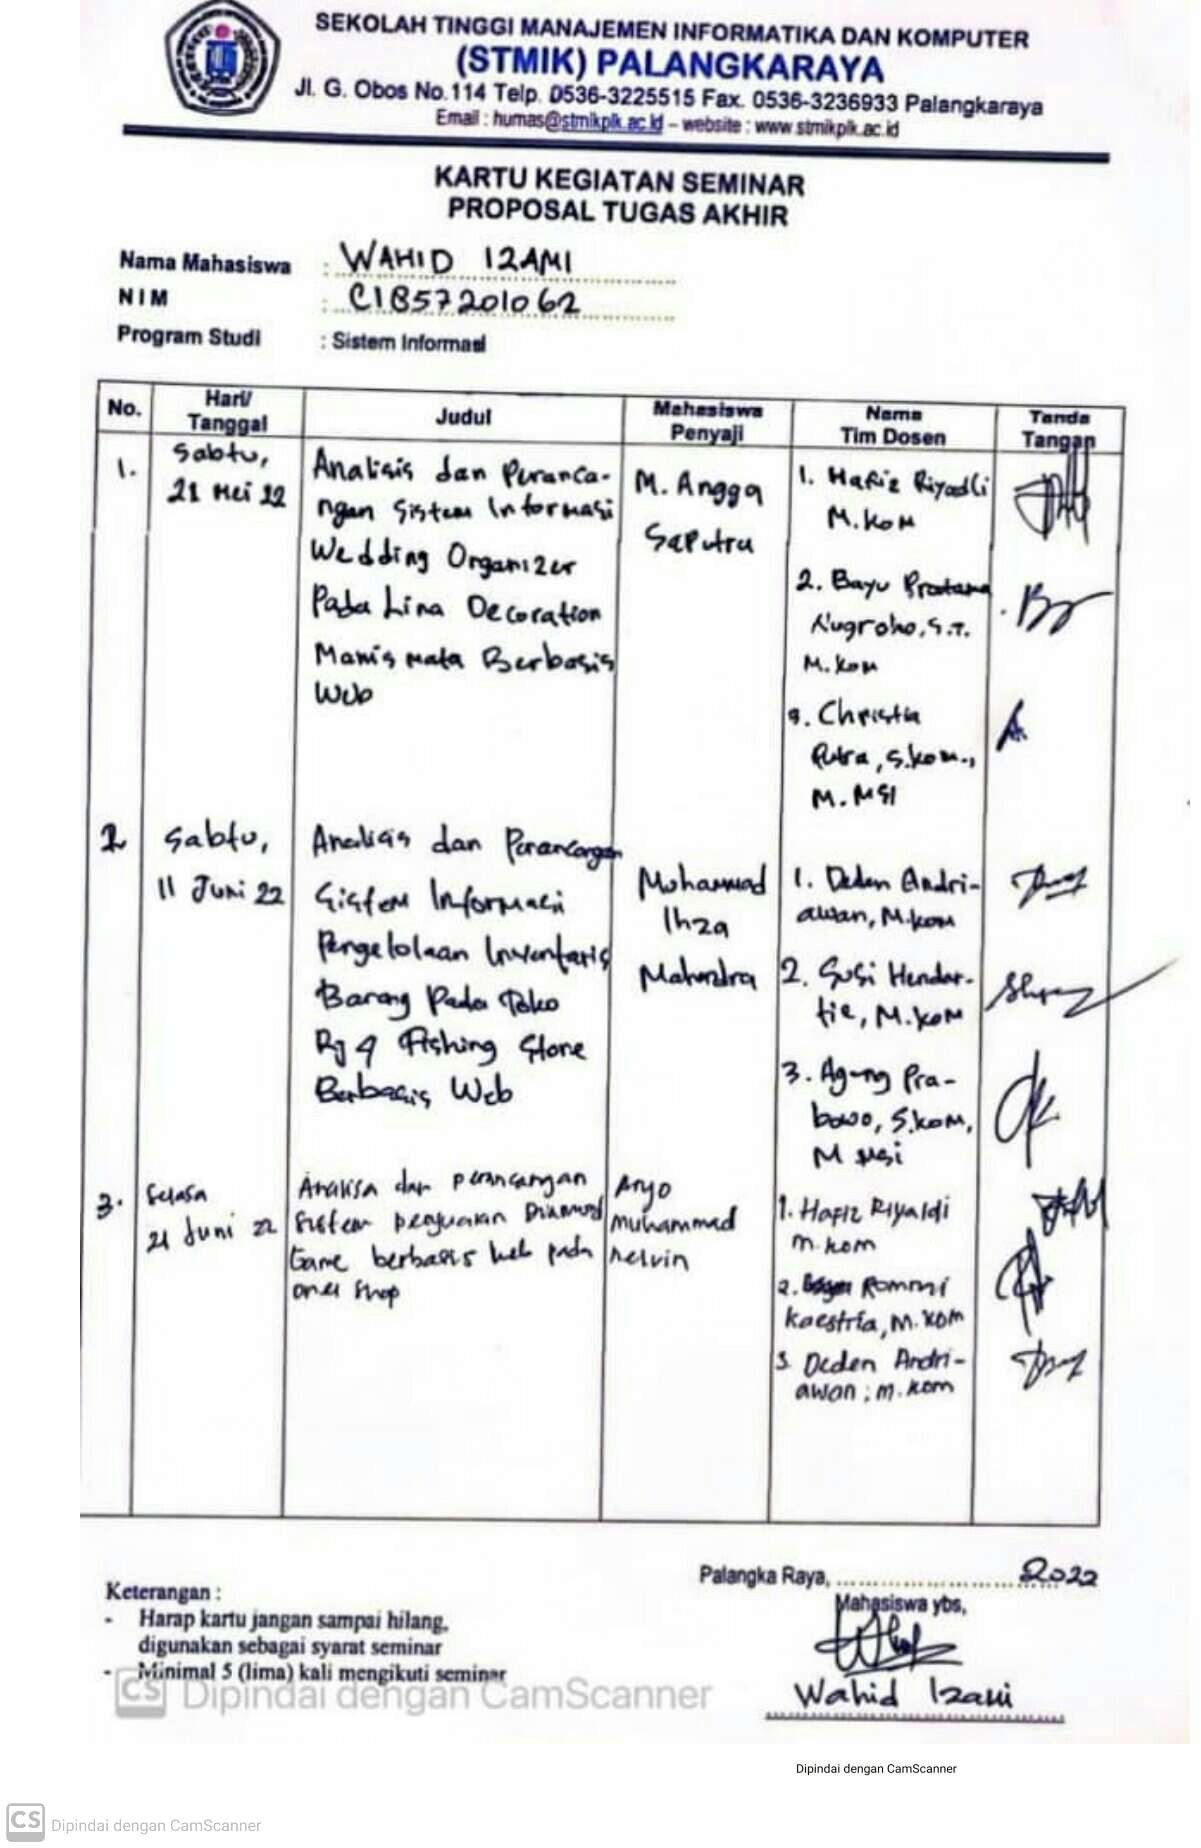 SEKOLAH TINGGI MANAJEMEN INFORMATIKA DAN KOMPUTER
(STMIK) PALANGKARAYA
Jl. G. Obos No.114 Telp. 0536-3225515 Fax. 0536-3236933 Palangkaraya
Email : humas@stmikplk.ac.id – website : www.stmikplk.ac.id
KARTU KEGIATAN SEMINAR
PROPOSAL TUGAS AKHIR
Nama Mahasiswa : WAHID IZAMI
NIM : C1857201062
Program Studi : Sistem Informasi
No. Hari/ Tanggal Judul Mahasiswa Penyaji Nama Tim Dosen Tanda Tangan
1. Sabtu,
21 Mei 22
Analisis dan Peranca-
ngan Sistem Informasi
Wedding Organizer
Pada Lina Decoration
Manis mata Berbasis
Web
M. Angga
Saputra
1. Hafiz Riyadli
M.Kom
2. Bayu Pratama
Nugroho, S.T.
M.Kom
3. Christia
Putra, S.kom.,
M. MSI
2 Sabtu,
11 Juni 22
Analisis dan Perancangan
Sistem Informasi
Pengelolaan Inventaris
Barang Pada Toko
Rj 9 Fishing Store
Berbasis Web
Mohammad
Ihza
Mahendra
1. Deden Andri-
awan, M.kom
2. Susi Hendar-
tie, M.KoM
3. Agung Pra-
bowo, S.kom,
M MSi
3. Selasa
21 Juni 22
Analisa dan perancangan
Sistem penjualan Diamond
Game berbasis Web pada
shop
Aryo
Muhammad
kelvin
1. Hafiz Riyaldi
m.kom
2. Rommi
Kaestria, M.KOM
3. Deden Andri-
awan ; m.kom
Palangka Raya, 2022
Mahasiswa ybs,
Wahid Izami
Keterangan :
- Harap kartu jangan sampai hilang,
digunakan sebagai syarat seminar
- Minimal 5 (lima) kali mengikuti seminar
CS Dipindai dengan CamScanner
Dipindai dengan CamScanner
CS Dipindai dengan CamScanner